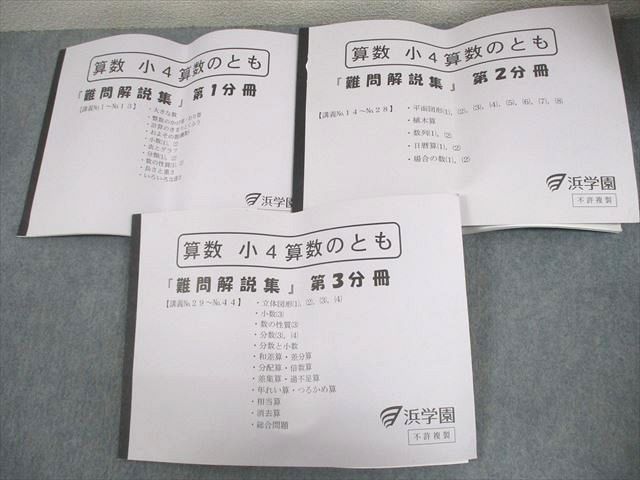 算数 小4算数のとも
『難問解説集』 第1分冊
【講義№1～№13】
・大きな数
・整数のかけ算・わり算
・計算のきまりとくふう
・およその数(概数)
・小数⑴，⑵
・表とグラフ
・分数⑴，⑵
・数の性質⑴，⑵
・長さと重さ
・いろいろな速さ
浜学園
算数 小4算数のとも
『難問解説集』 第2分冊
【講義№14～№28】
・平面図形⑴，⑵，⑶，⑷，⑸，⑹，⑺，⑻
・植木算
・数列⑴，⑵
・日暦算⑴，⑵
・場合の数⑴，⑵
浜学園
不許複製
算数 小4算数のとも
『難問解説集』 第3分冊
【講義№29～№44】
・立体図形⑴，⑵，⑶，⑷
・小数⑶
・数の性質⑶
・分数⑶，⑷
・分数と小数
・和差算・差分算
・分配算・倍数算
・差集算・過不足算
・年れい算・つるかめ算
・相当算
・消去算
・総合問題
浜学園
不許複製